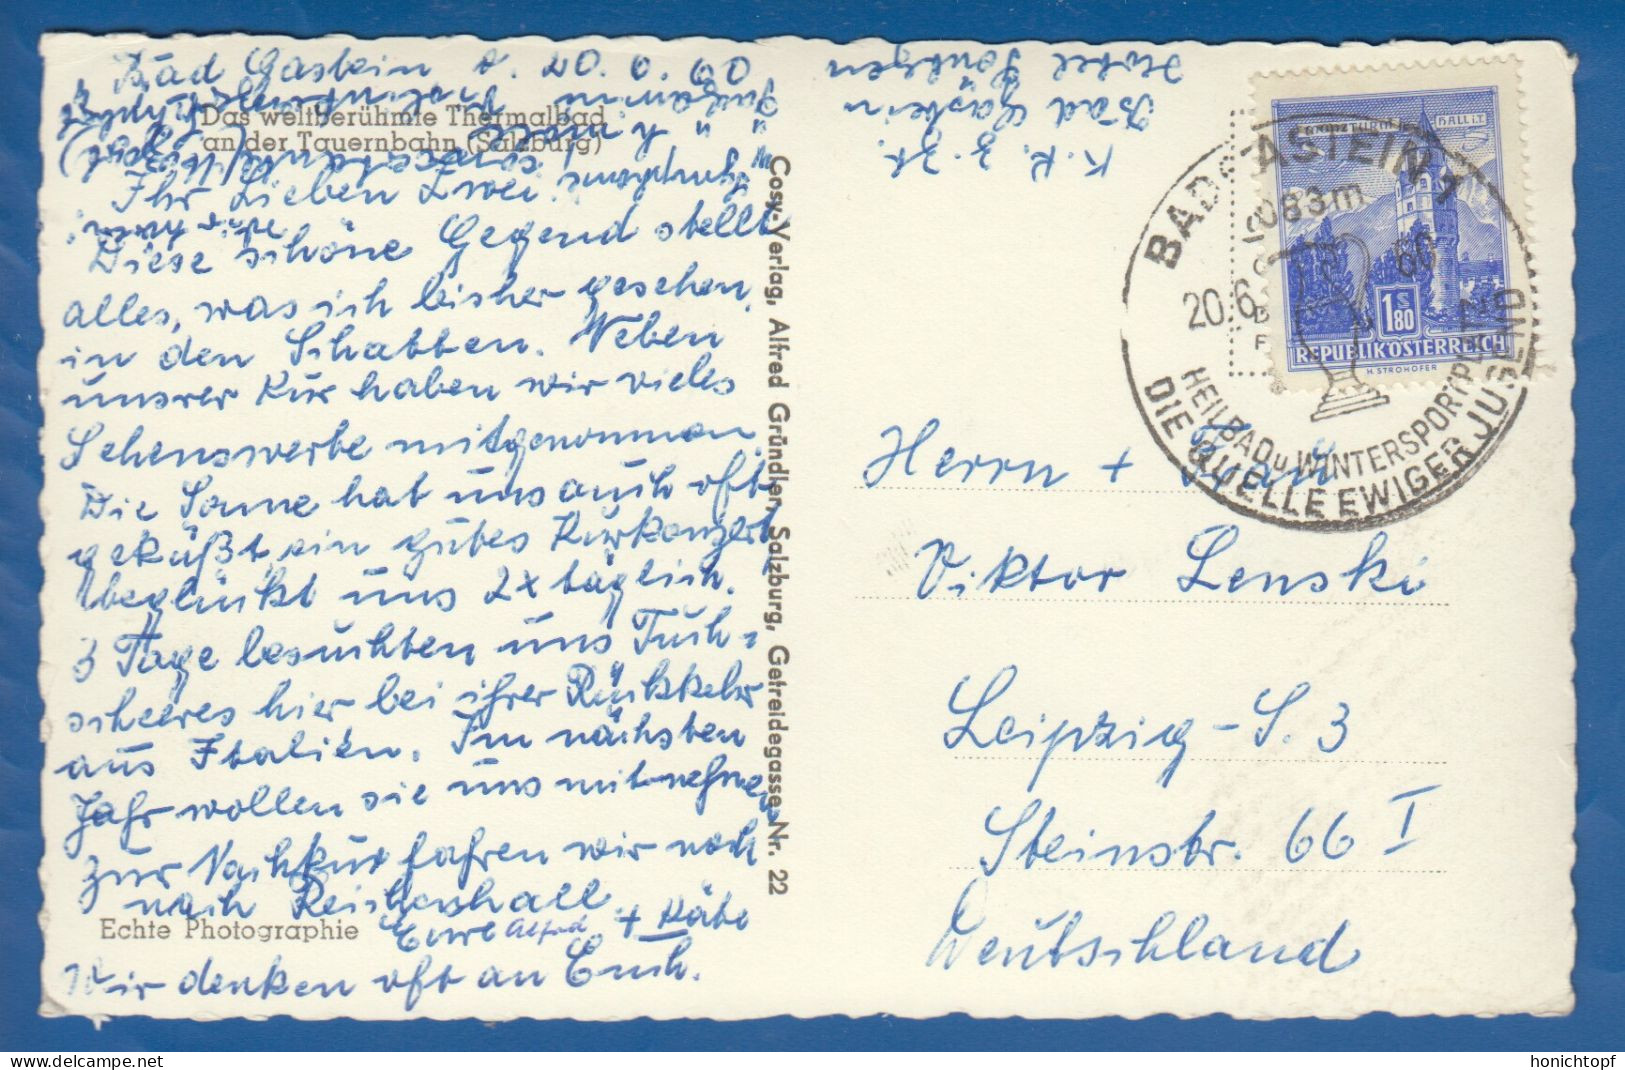 Bad Gastein d. 20.6.60
Das weltberühmte Thermalbad
an der Tauernbahn (Salzburg)
Ihr Lieben Zwei!
Diese schöne Gegend stellt
alles, was ich bisher gesehen,
in den Schatten. Neben
unsrer Kur haben wir vieles
Sehenswerte mitgenommen.
Die Sonne hat uns auch oft
geküßt, ein gutes Kurkonzert
beglückt uns 2x täglich.
3 Tage besuchten uns Tuch-
scheeres hier bei ihrer Rückkehr
aus Italien. Im nächsten
Jahr wollen sie uns mitnehmen
zur Nachkur fahren wir noch
nach Reichenhall.
Eure Alfred + Käte
Echte Photographie
Wir denken oft an Euch.
Cosy-Verlag, Alfred Gründler, Salzburg, Getreidegasse Nr. 22
z. Zt.
Bad Gastein
Hotel
HALL i.T.
1 S 80
REPUBLIK ÖSTERREICH
H. STROHOFER
BADGASTEIN 1
1083 m
20.6. 60
HEILBAD u. WINTERSPORTPLATZ
DIE QUELLE EWIGER JUGEND
Herrn + Frau
Viktor Lenski
Leipzig-S. 3
Steinstr. 66 I
Deutschland
honichtopf